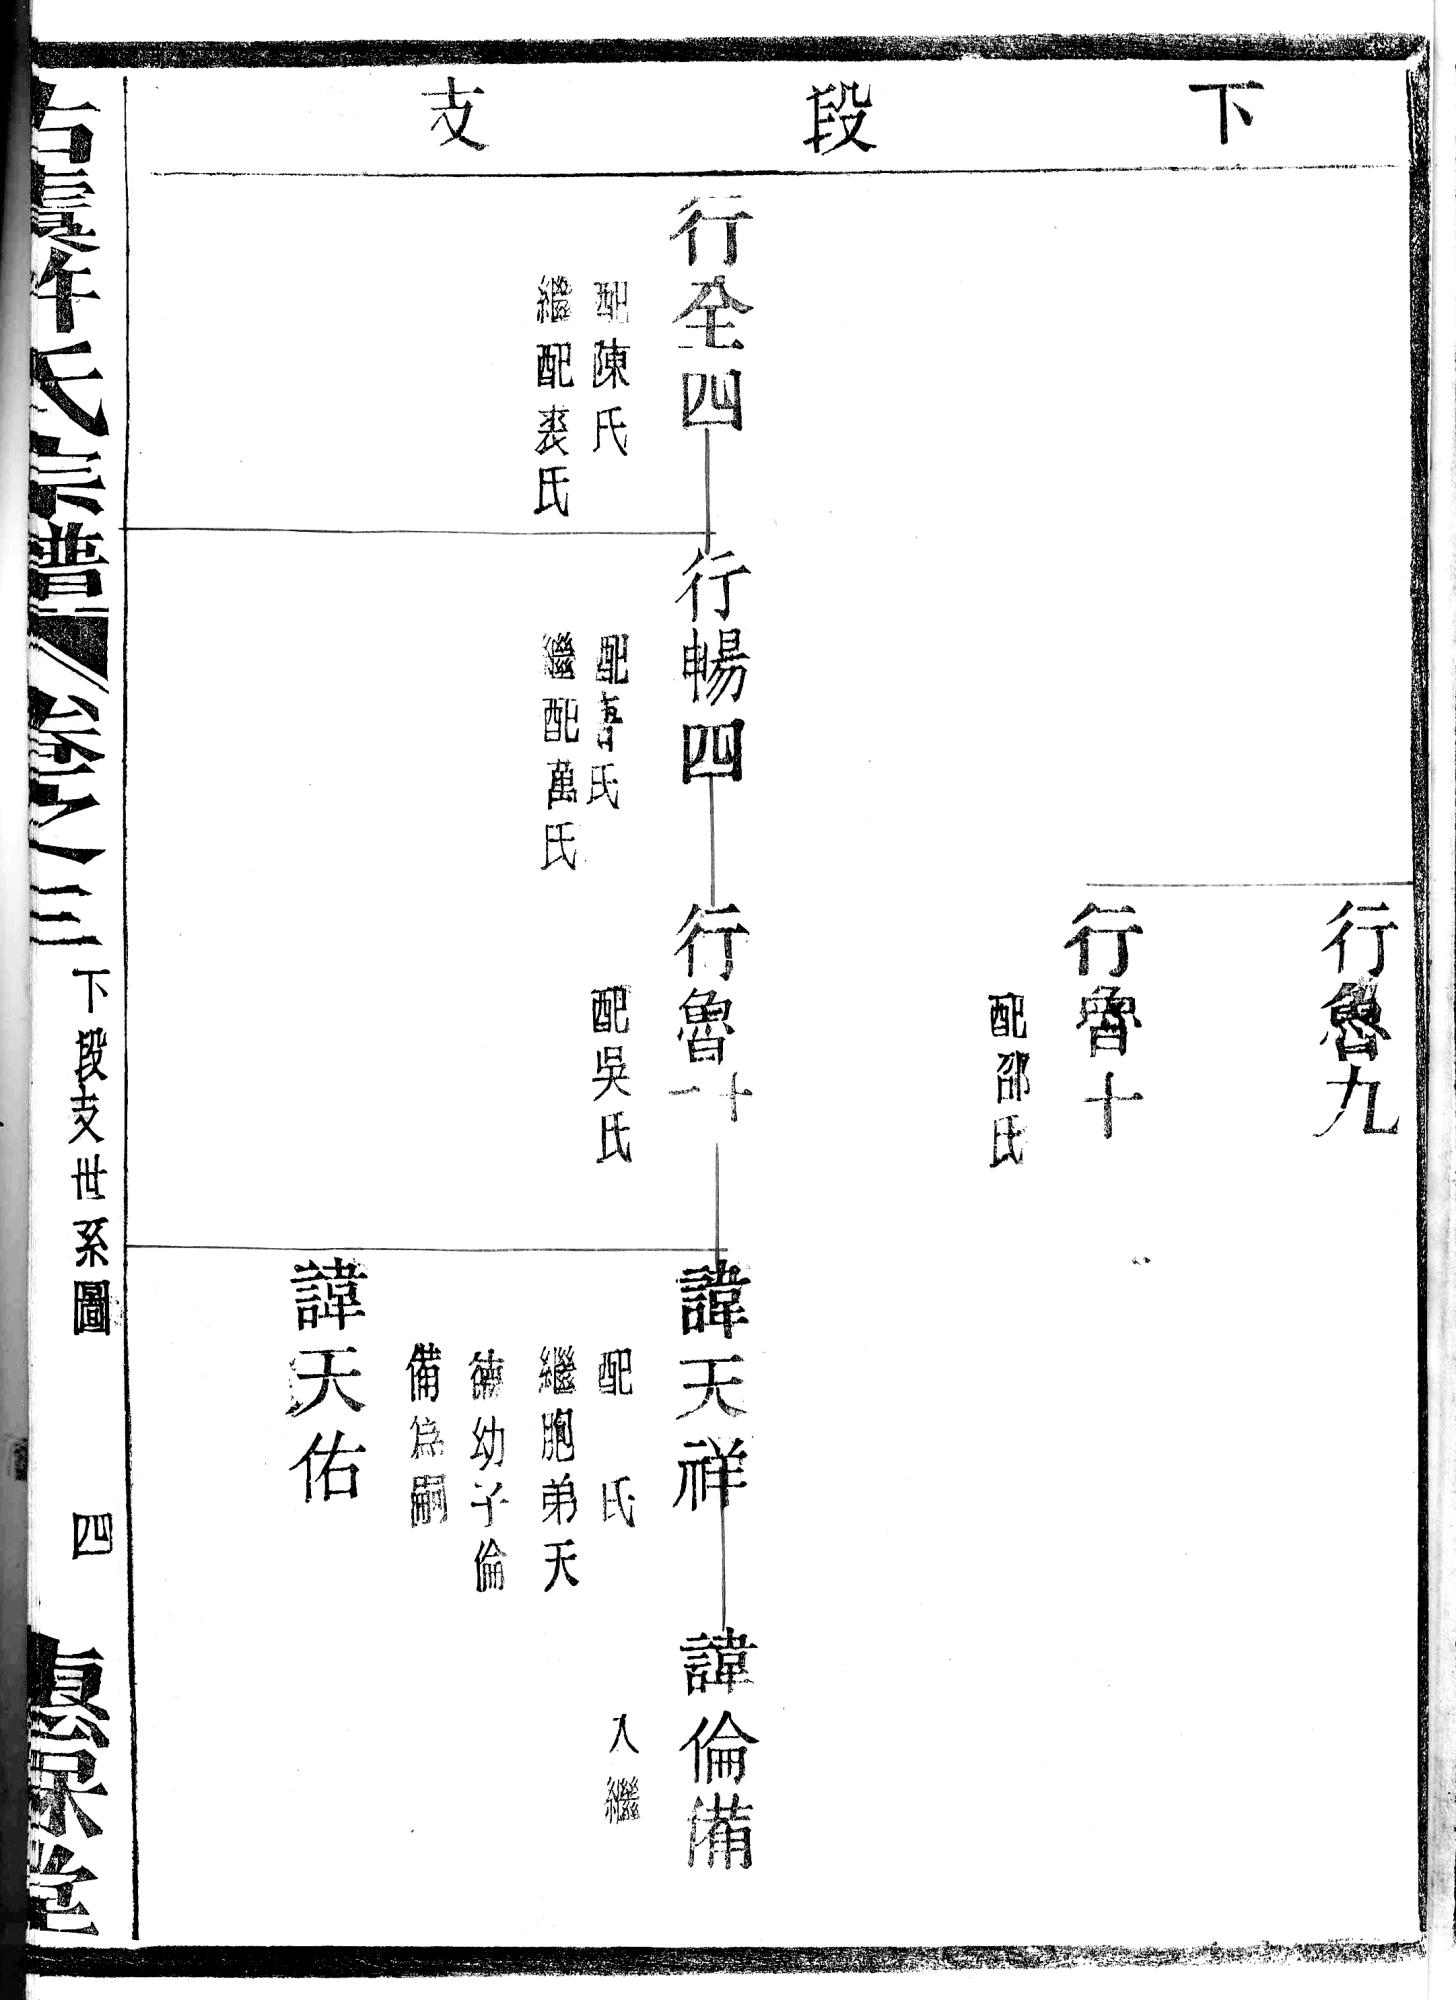 下段支
行魯九
行魯十
配邵氏
行全四
配陳氏
繼配裘氏
行暢四
配魯氏
繼配萬氏
行魯十一
配吳氏
諱天祥
配　氏
繼胞弟天
德幼子倫
備為嗣
諱倫備
入繼
諱天佑
氏宗譜
卷之三
下段支世系圖
四
堂